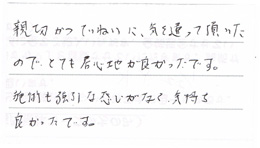 親切かつていねいに、気を遣って頂いた
ので、とても居心地が良かったです。
施術も強引な感じがなく、気持ち
良かったです。